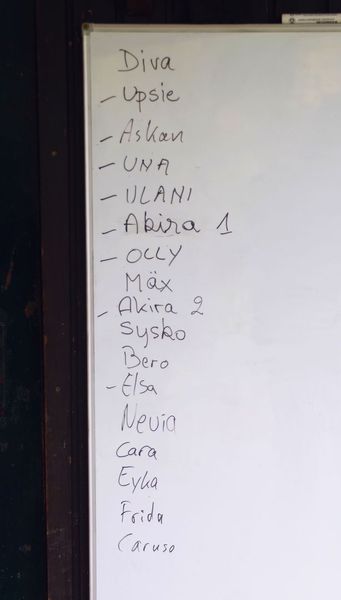 Diva
- Upsie
- Askan
- UNA
- ULANI
- Akira 1
- OLLY
Mäx
- Akira 2
Sysko
Bero
- Elsa
Nevia
Cara
Eyka
Frida
Caruso